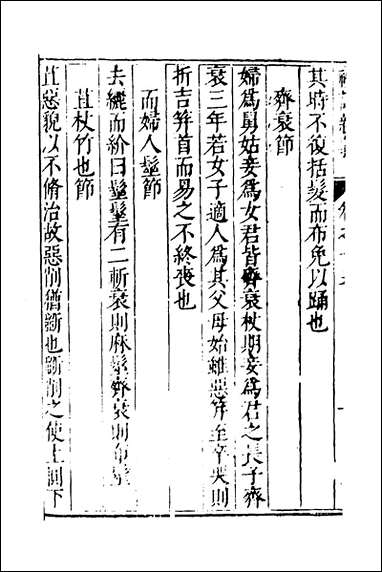 其時不復括髮而布免以踊也
齊衰節
婦為舅姑妾為女君皆齊衰杖期妾為君之長子齊
衰三年若女子適人為其父母始雖惡笄至卒哭則
折吉笄首而易之不終喪也
而婦人髽節
去纚而紒曰髽髽有二斬衰則麻髽齊衰則布髽
苴杖竹也節
苴惡貌以不脩治故惡削猶斷也斷削之使上圓下